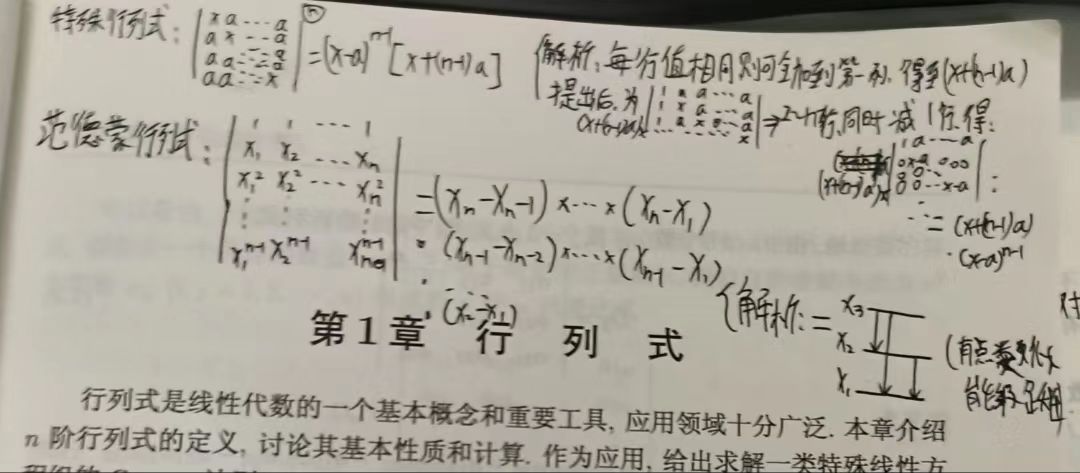 特殊行列式: | x a ⋯ a | ⓝ
| a x ⋯ a |
| a a ⋯ a | = (x-a)^{n-1} [x+(n-1)a]
| a a ⋯ x |
(解析: 每行值相同则可全加到第一列, 得到(x+(n-1)a)
提出后, 为 | 1 a a ⋯ a |
(x+(n-1)a)x | 1 x a ⋯ a | ⇒ 2~n行同时减1行, 得:
| 1 a x ⋯ a |
x |
| 1 a ⋯ a |
| 0 x-a 0 0 0 |
(x+(n-1)a)x | 0 0 ⋯ x-a | :
∴ = (x+(n-1)a)
· (x-a)^{n-1}
范德蒙行列式: | 1 1 ⋯ 1 |
| x₁ x₂ ⋯ xₙ |
| x₁² x₂² ⋯ xₙ² |
| ⋮ ⋮ ⋮ | = (xₙ-xₙ-1) x⋯x (xₙ-x₁)
| x₁^{n-1} x₂^{n-1} xₙ^{n-1} | · (xₙ₋₁-xₙ₋₂) x⋯x (xₙ₋₁-x₁)
· ⋯
· (x₂-x₁)
(解析: = x₃
x₂ (有点类似
x₁ 能级跃迁
第 1 章 行 列 式
行列式是线性代数的一个基本概念和重要工具, 应用领域十分广泛. 本章介绍
n 阶行列式的定义, 讨论其基本性质和计算. 作为应用, 给出求解一类特殊线性方